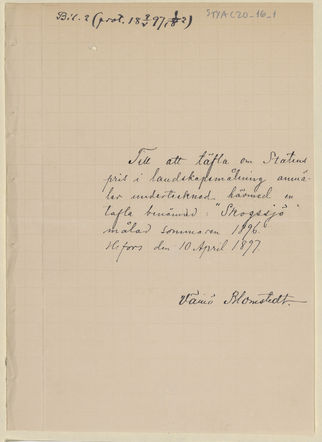 Bil. 2 (prot. 18 3/V 97, § 2)
STYAC20_16_1
Till att täfla om Statens
pris i landskapsmålning anmä-
ler undertecknad härmed en
tafla benämnd: "Skogssjö"
målad sommaren 1896.
H:fors den 10 April 1897.
Väinö Blomstedt.